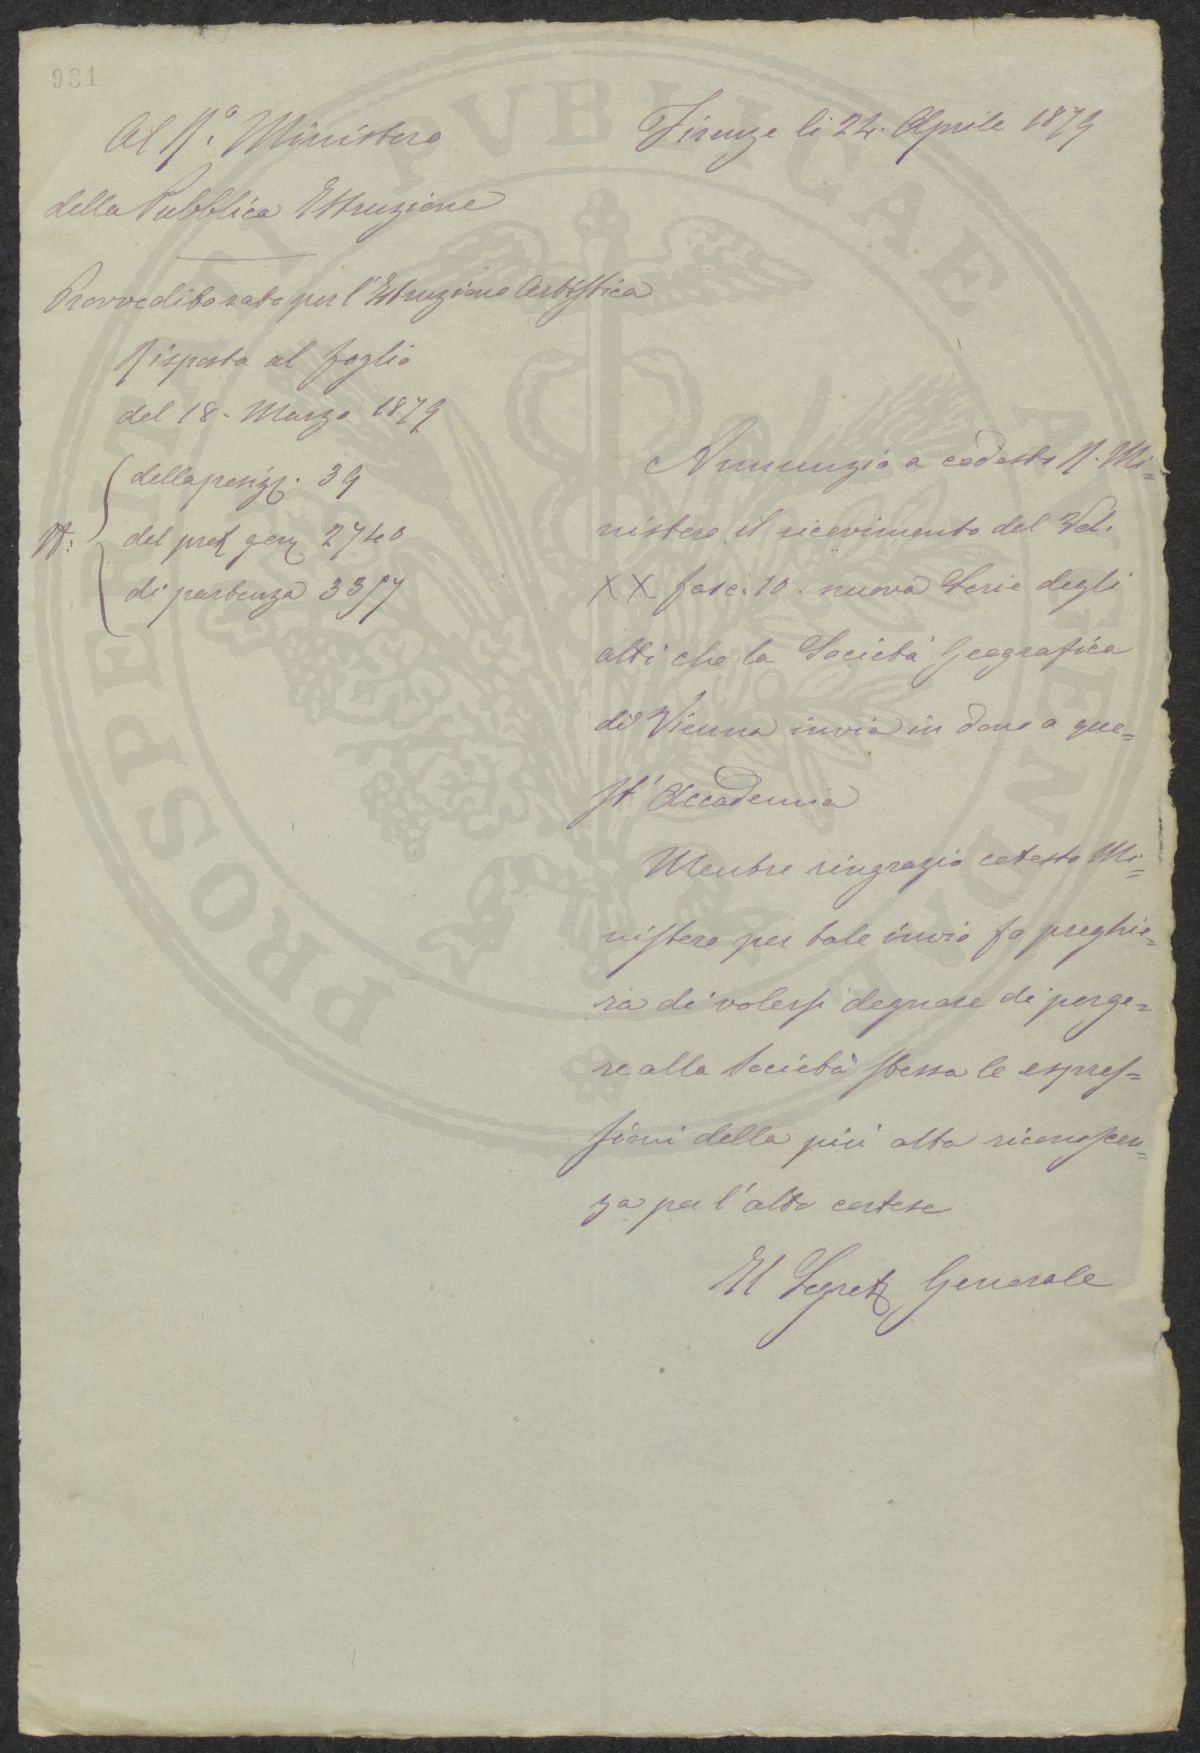 981
Al R.º Ministero
della Pubblica Istruzione
Provveditorato per l'Istruzione Artistica
Risposta al foglio
del 18. Marzo 1879
della posiz. 39
N: del prot gen 2740
di partenza 3357
Firenze li 24. Aprile 1879
Annunzio a codesto R. Mi=
nistero il ricevimento del Vol.
XX fasc. 10. nuova Serie degli
atti che la Società Geografica
di Vienna invia in dono a que=
st' Accademia
Mentre ringrazio cotesto Mi=
nistero per tale invio fo preghie=
ra di volersi degnare di porge=
re alla Società stessa le espres=
sioni della più alta riconoscen=
za per l'atto cortese
Il Segret Generale
PROSPERITATI PVBLICAE AVGENDAE